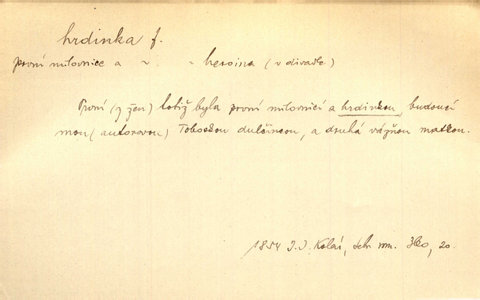 hrdinka f.
první milovnice a ~ . - heroina (v divadle)
První (z žen) totiž byla první milovnicí a hrdinkou, budoucí
mou (autorovou) Toboskou dulcineou, a druhá vážnou matkou.
1854 J. J. Kolár, 20.